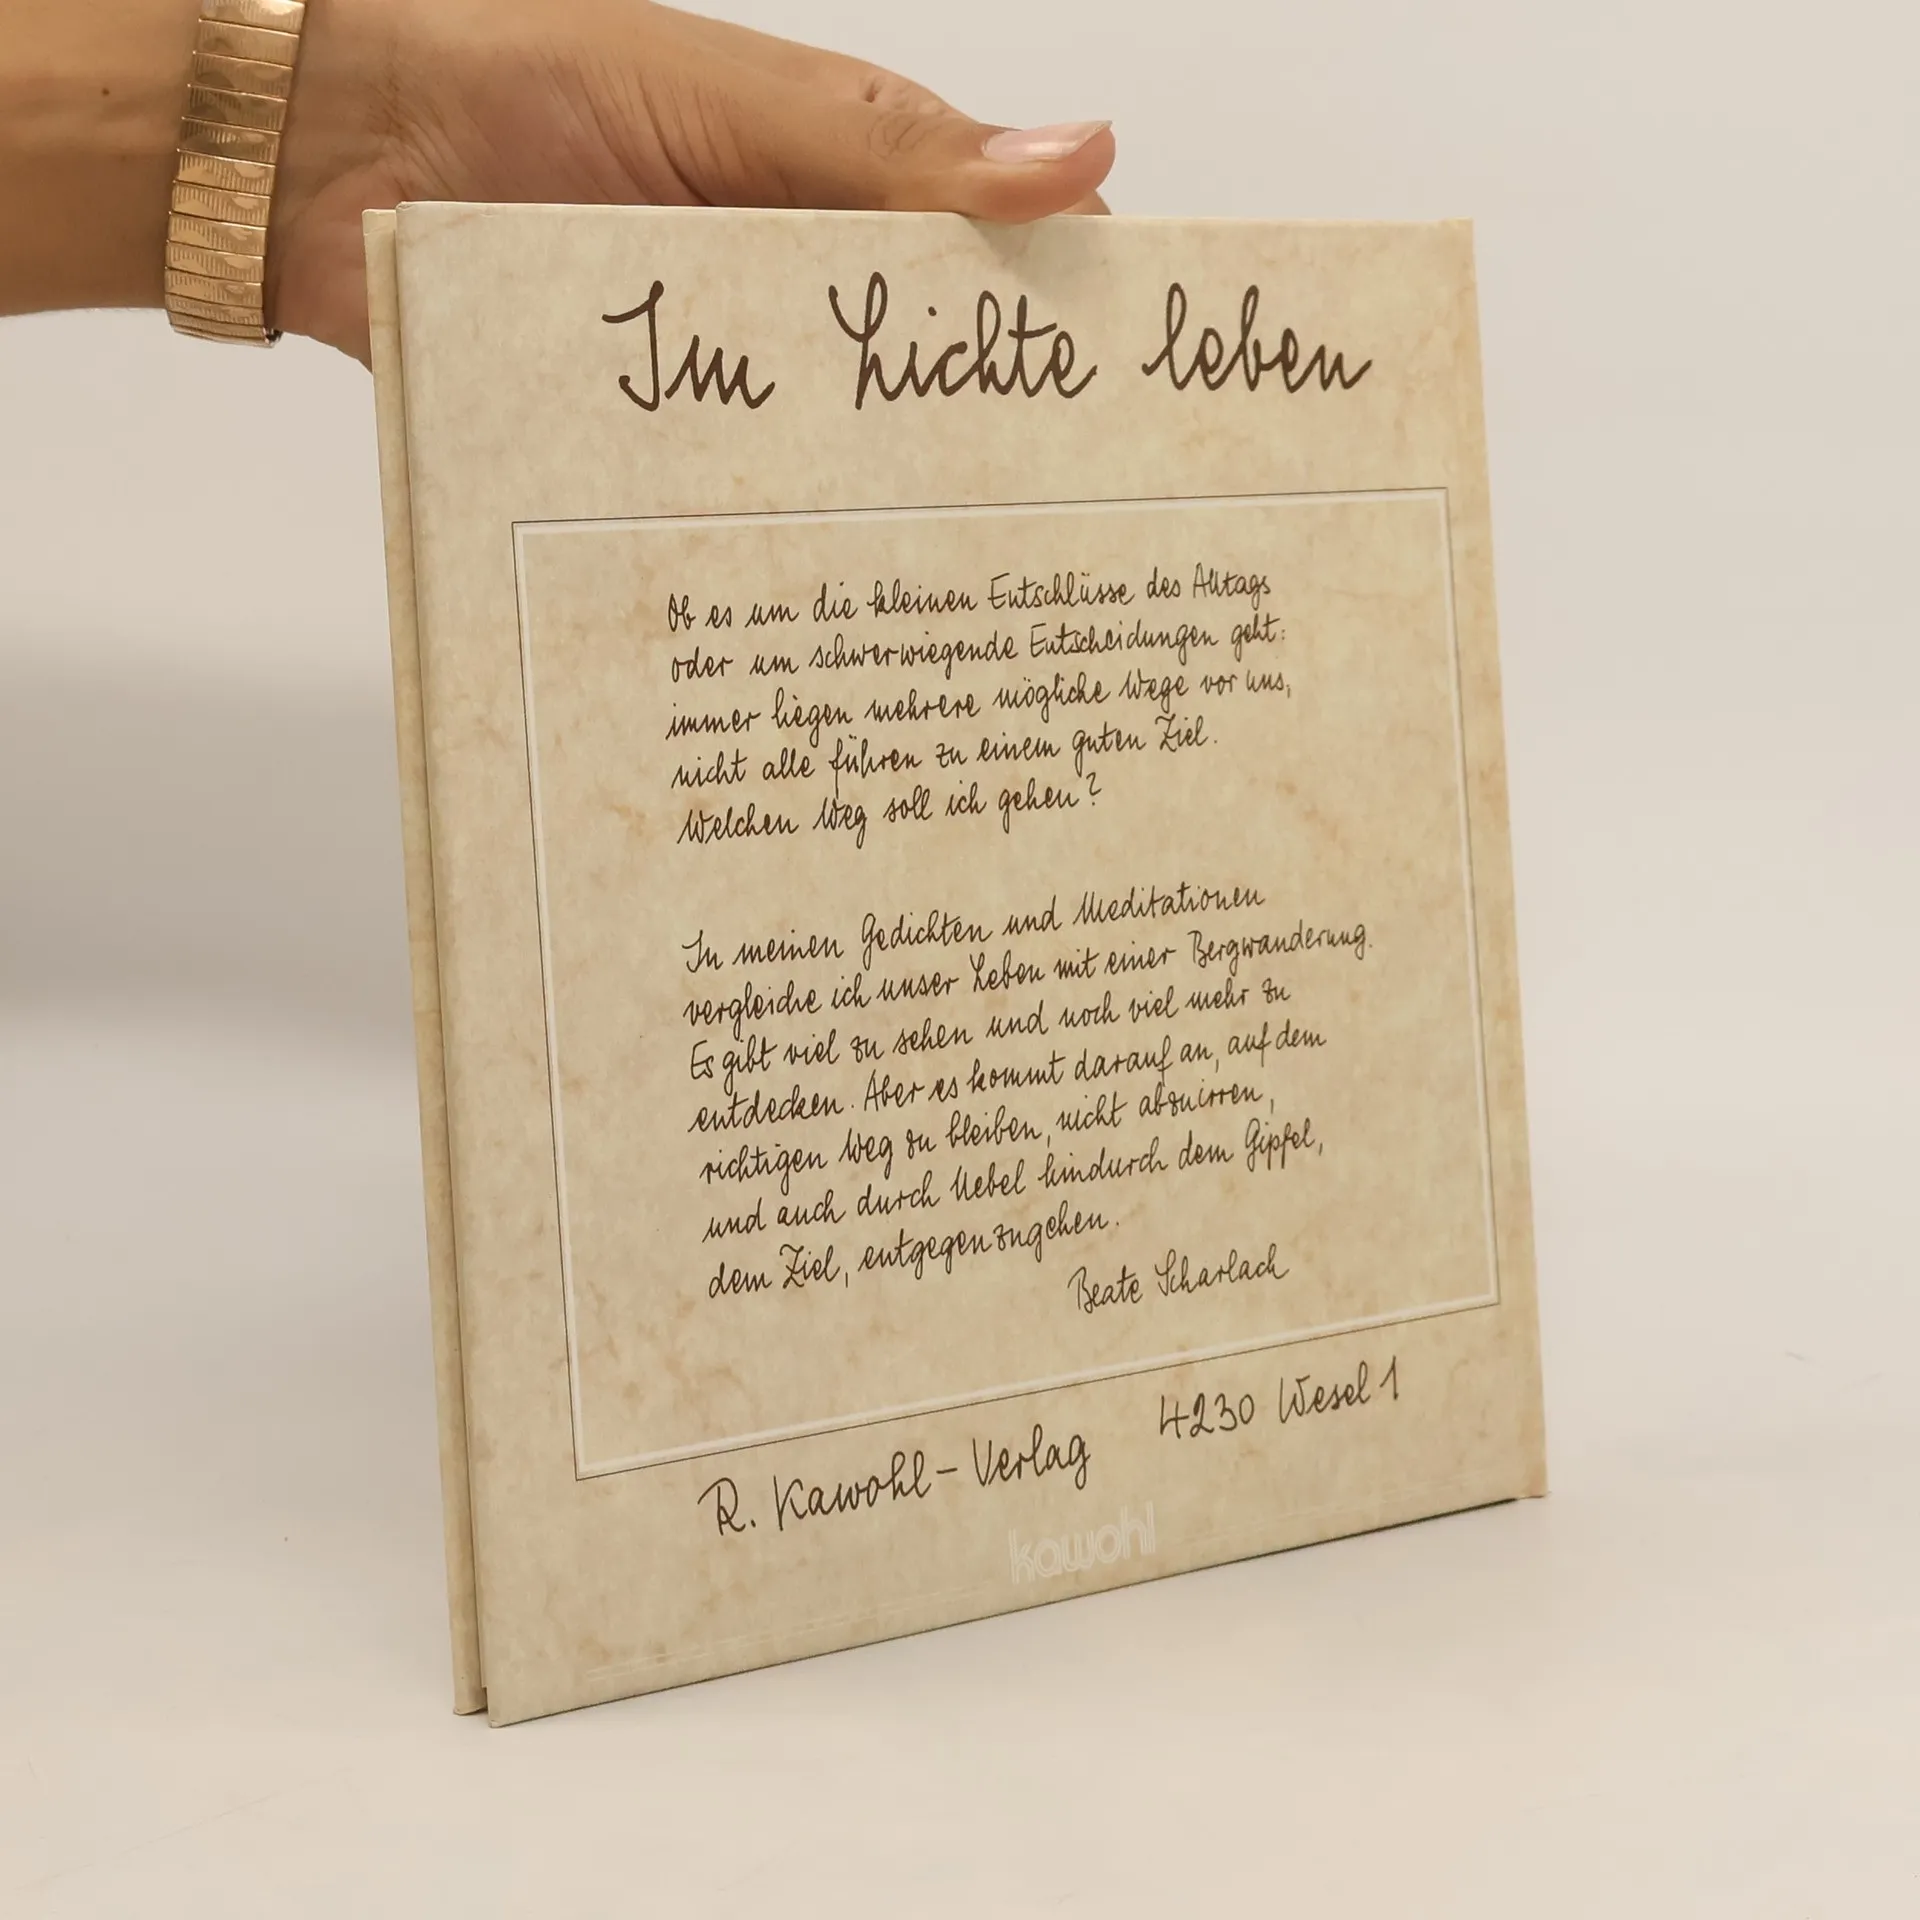 Im Lichte leben
Ob es um die kleinen Entschlüsse des Alltags
oder um schwerwiegende Entscheidungen geht:
immer liegen mehrere mögliche Wege vor uns,
nicht alle führen zu einem guten Ziel.
Welchen Weg soll ich gehen?
In meinen Gedichten und Meditationen
vergleiche ich unser Leben mit einer Bergwanderung.
Es gibt viel zu sehen und noch viel mehr zu
entdecken. Aber es kommt darauf an, auf dem
richtigen Weg zu bleiben, nicht abzuirren,
und auch durch Nebel hindurch dem Gipfel,
dem Ziel, entgegenzugehen.
Beate Scharlach
R. Kawohl-Verlag 4230 Wesel 1
kawohl